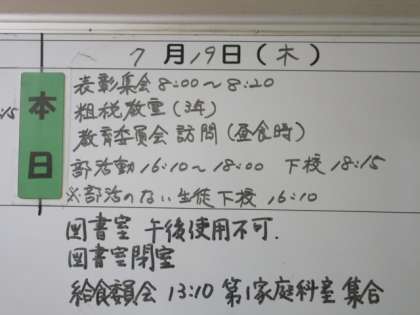 7月19日(木)
本日
表彰集会 8:00～8:20
租税教室(3年)
教育委員会 訪問(昼食時)
部活動 16:10～18:00 下校 18:15
※部活のない生徒下校 16:10
図書室 午後使用不可.
図書室閉室
給食委員会 13:10 第1家庭科室 集合